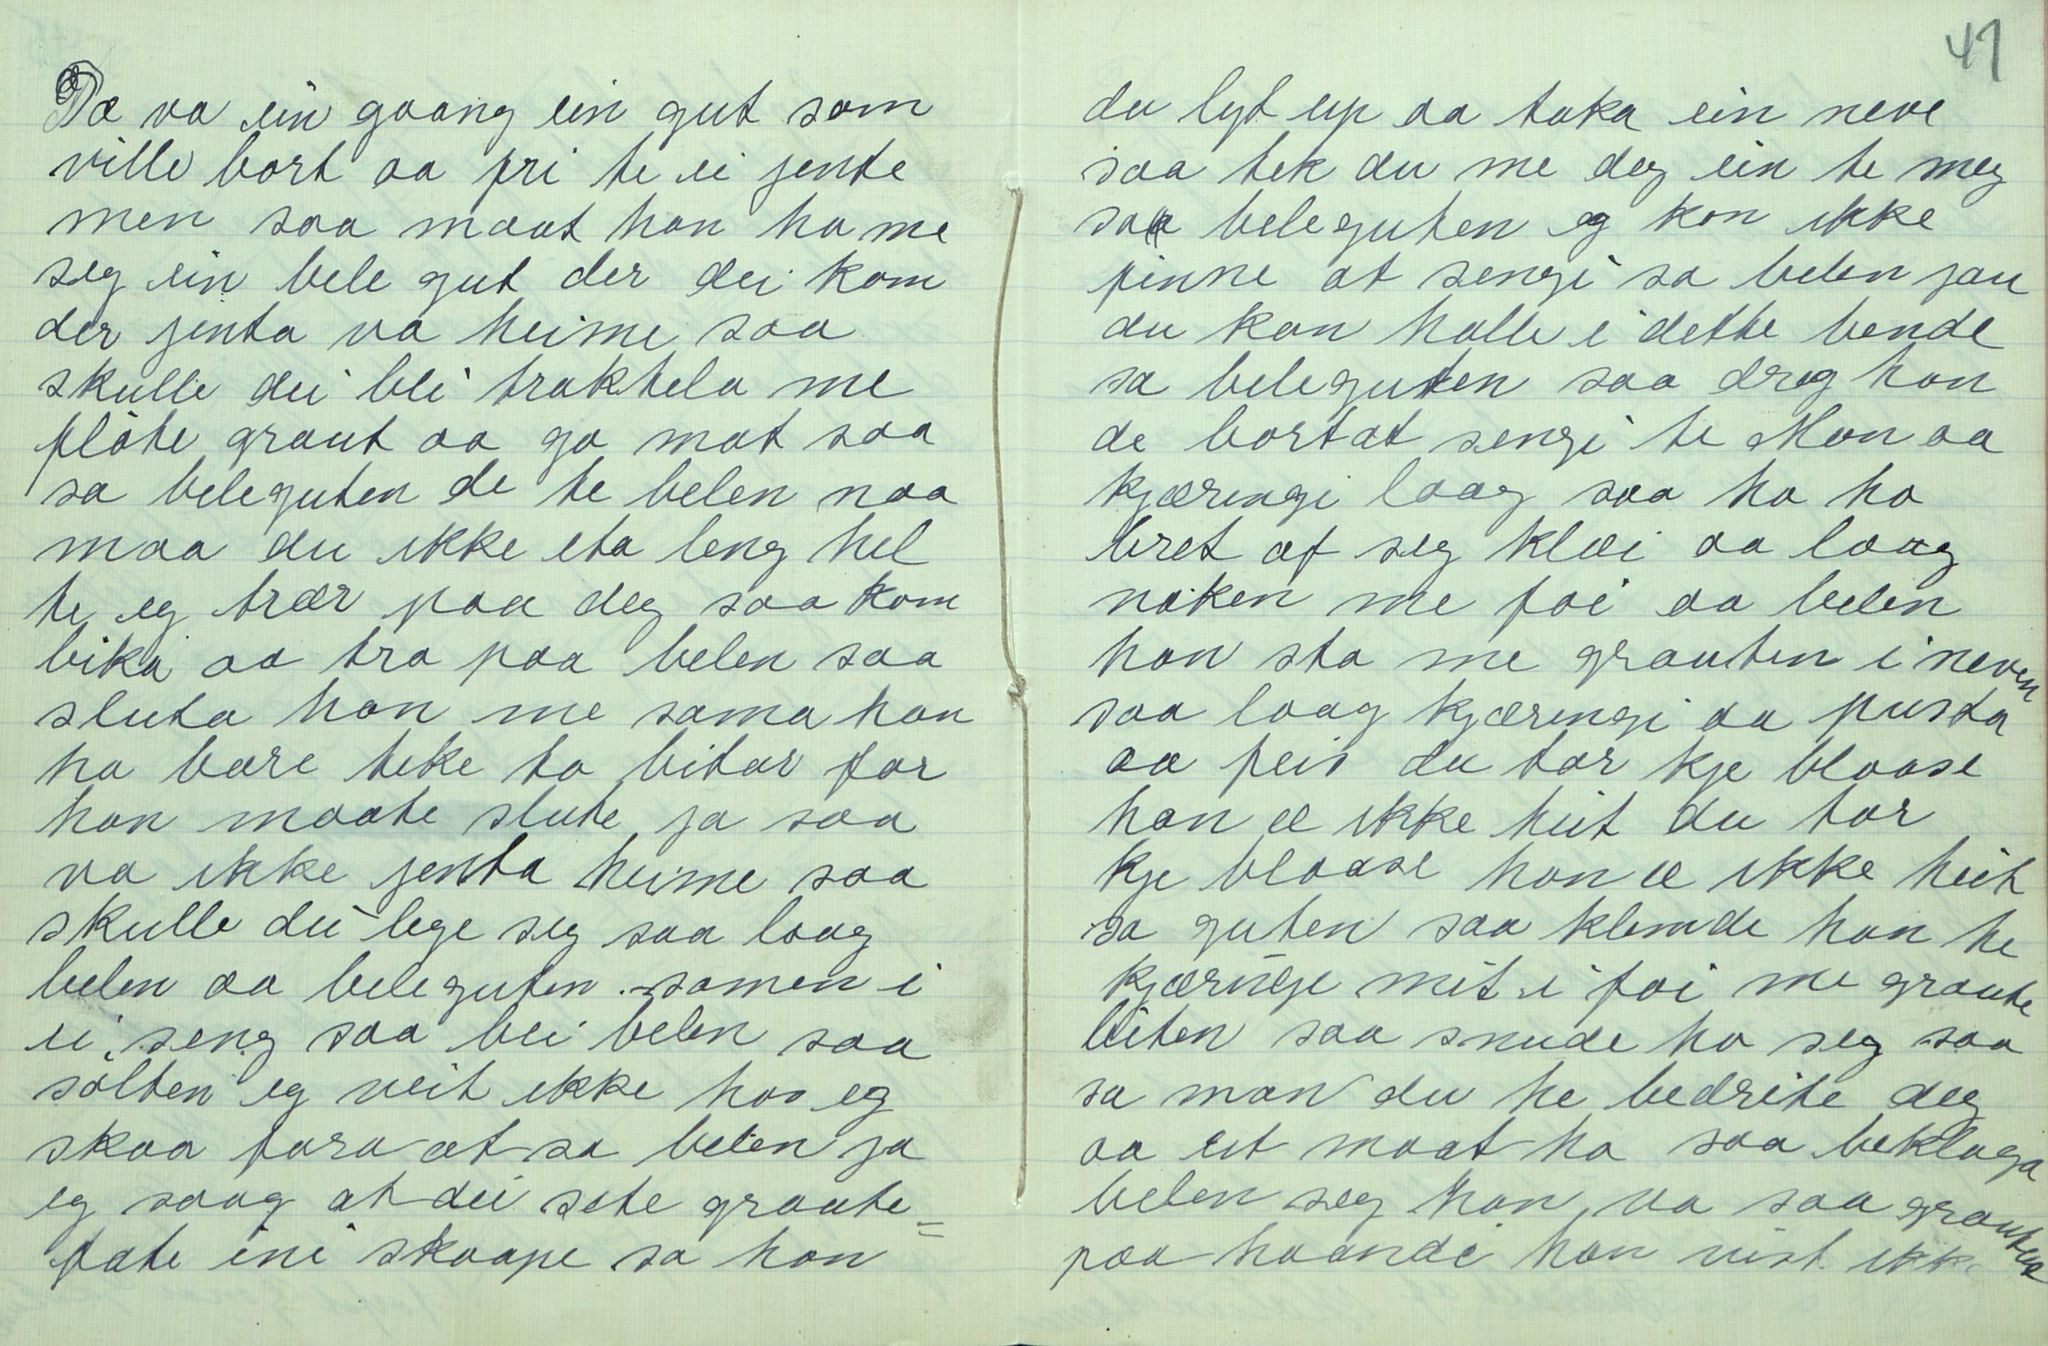 Dæ va ein goang ein gut som
ville bort aa fri te ei jente
men saa maat han ha me
seg ein bele gut der dei kom
der jenta va heime saa
skulle dei bli traktela me
fløte graut aa go mat saa
sa beleguten de te belen naa
maa du ikke eta leng hel
te eg trær paa deg saa kom
bika aa tra paa belen saa
sluta han me sama han
ha bare teke to bitar før
han maate slute ja saa
va ikke jenta heime saa
skulle dei lege seg saa laag
belen aa beleguten samen i
ei seng saa blei belen saa
sølten eg veit ikke hos eg
skaa fara at sa belen ja
eg saag at dei sete graute=
fate ini skaape sa han
41
du lyt up aa taka ein neve
saa tek du me deg ein te meg
saa beleguten eg kan ikke
finne at sengi sa belen jau
du kan halle i dette bende
sa beleguten saa drog han
de bortat sengi te Mon aa
kjæringi laag saa ha ho
bret af seg klæi aa laag
naken me foi aa belen
han sto me grauten i neven
saa laag kjæringi aa pusta
aa feis du tar kje blaase
han æ ikke heit du tar
kje blaase han æ ikke heit
sa guten saa klemde han te
kjæringe mit i foi me graute
biten saa snude ho seg saa
sa man du he bedrite deg
aa ut maat ho saa beklaga
belen seg han va saa grauten
paa haandi han vist ikke